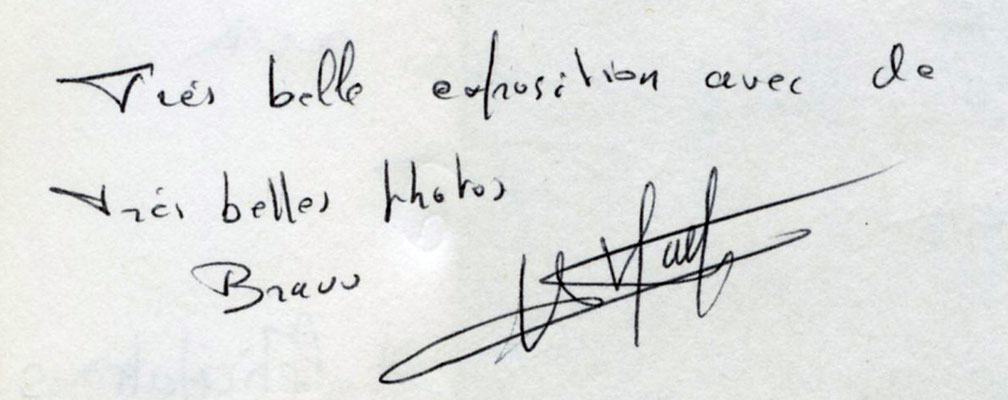 Trés belle exposition avec de
trés belles photos
Bravo